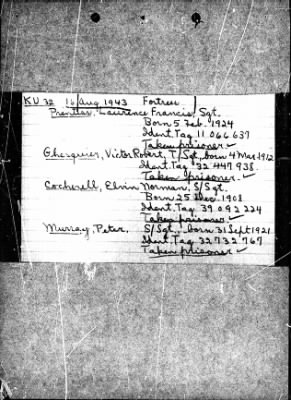 KU 72 16 Aug 1943 Fortress
Lawrence Francis, Sgt.
Born 5 Feb. 1924
Ident. Tag 11 066 637
Taken prisoner ✓
Victor Robert, T/Sgt, born 4 Mar 1912
Ident. Tag 32 447 938.
Taken prisoner. ✓
Cockrell, Elvin Norman, S/Sgt.
Born 25 Dec. 1908
Ident. Tag 39 092 224
Taken prisoner ✓
Murray, Peter, S/Sgt, born 31 Sept 1921
Ident. Tag 32 732 767
Taken prisoner ✓